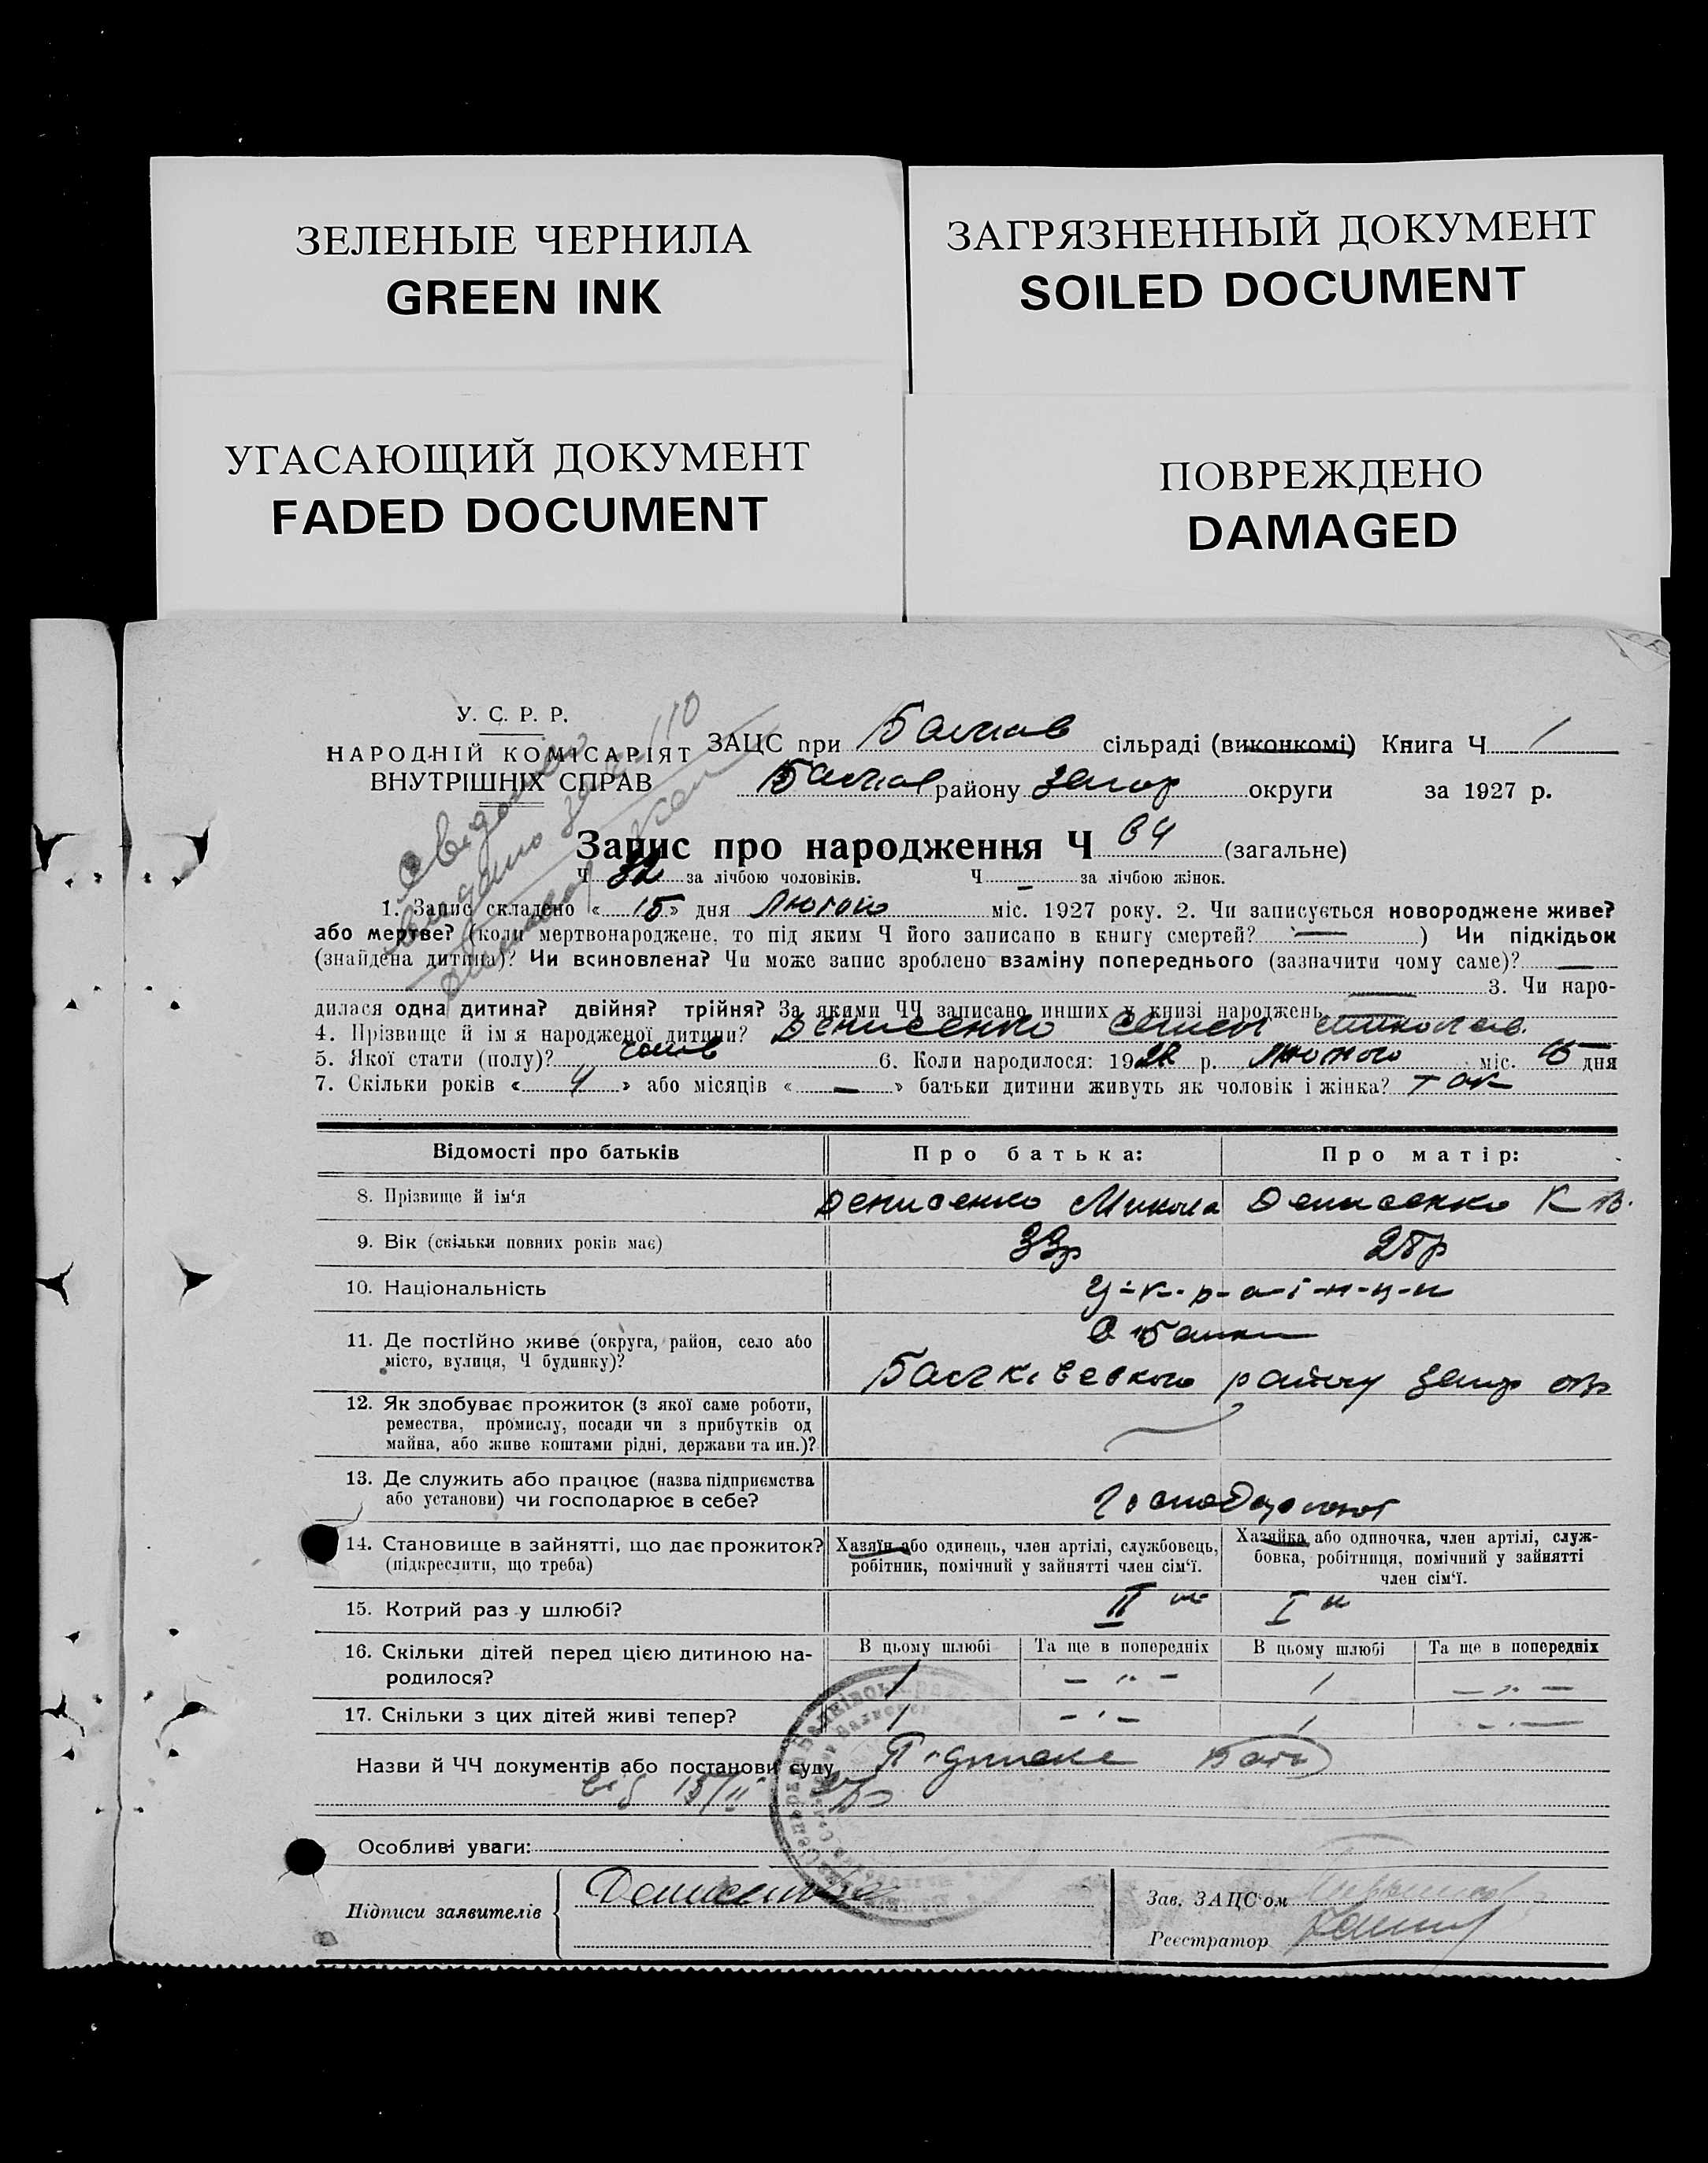 ЗЕЛЕНЫЕ ЧЕРНИЛА
GREEN INK
ЗАГРЯЗНЕННЫЙ ДОКУМЕНТ
SOILED DOCUMENT
УГАСАЮЩИЙ ДОКУМЕНТ
FADED DOCUMENT
ПОВРЕЖДЕНО
DAMAGED
У. С. Р. Р.
НАРОДНІЙ КОМІСАРІЯТ
ВНУТРІШНІХ СПРАВ
ЗАЦС при Балків сільраді (виконкомі) Книга Ч 1
Балків району Запор округи за 1927 р.
Запис про народження Ч 64 (загальне)
Ч 32 за лічбою чоловіків. Ч - за лічбою жінок.
1. Запис складено « 15 » дня Лютого міс. 1927 року. 2. Чи записується новороджене живе?
або мертве? (коли мертвонароджене, то під яким Ч його записано в книгу смертей? — ) Чи підкідьок
(знайдена дитина)? Чи всиновлена? Чи може запис зроблено взаміну попереднього (зазначити чому саме)? —
3. Чи наро-
дилася одна дитина? двійня? трійня? За якими ЧЧ записано инших у книзі народжень —
4. Прізвище й ім я народженої дитини? Денисенко
5. Якої стати (полу)? чолов 6. Коли народилося: 19 р. Лютого міс. дня
7. Скільки років « 4 » або місяців « — » батьки дитини живуть як чоловік і жінка? так
Відомості про батьків Про батька: Про матір:
8. Прізвище й ім‘я Денисенко Микола Денисенко К В.
9. Вік (скільки повних років має)
10. Національність У-к-р-а-ї-н-ц-и
11. Де постійно живе (округа, район, село або
місто, вулиця, Ч будинку)? С Балки
Балківського району Запор окр
12. Як здобуває прожиток (з якої саме роботи,
ремества, промислу, посади чи з прибутків од
майна, або живе коштами рідні, держави та ин.)?
13. Де служить або працює (назва підприємства
або установи) чи господарює в себе?
14. Становище в зайнятті, що дає прожиток?
(підкреслити, що треба)
Хазяїн або одинець, член артілі, службовець,
робітник, помічний у зайнятті член сім‘ї.
Хазяйка або одиночка, член артілі, служ-
бовка, робітниця, помічний у зайнятті
член сім‘ї.
15. Котрий раз у шлюбі? II I
16. Скільки дітей перед цією дитиною на-
родилося?
В цьому шлюбі Та ще в попередніх В цьому шлюбі Та ще в попередніх
1 - „ - 1 - „ -
17. Скільки з цих дітей живі тепер? 1 - „ - 1 - „ -
Назви й ЧЧ документів або постанови суду
від 15/II 27р
Особливі уваги:
Підписи заявителів Денисенко
Зав. ЗАЦС‘ом
Реєстратор